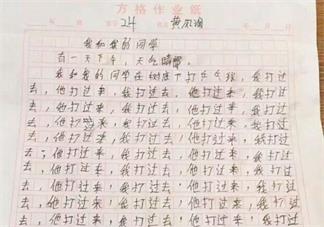 方格作业纸
24 黄
我和我的同学
有一天下午，天气晴朗。
我和我的同学在树底下打乒乓球，我打过
去，他打过来，我打过去，他打过来，我打过
去，他打过来，我打过去，他打过来，我打过
去，他打过来，我打过去，他打过来，我打过
去，他打过来，我打过去，他打过来，我打过
去，他打过来，我打过去，他打过来，我打过
去，他打过来，我打过去，他打过来，我打过
去，他打过来，我打过去，他打过来，我打过
去，他打过来，我打过去，他打过来，我打过